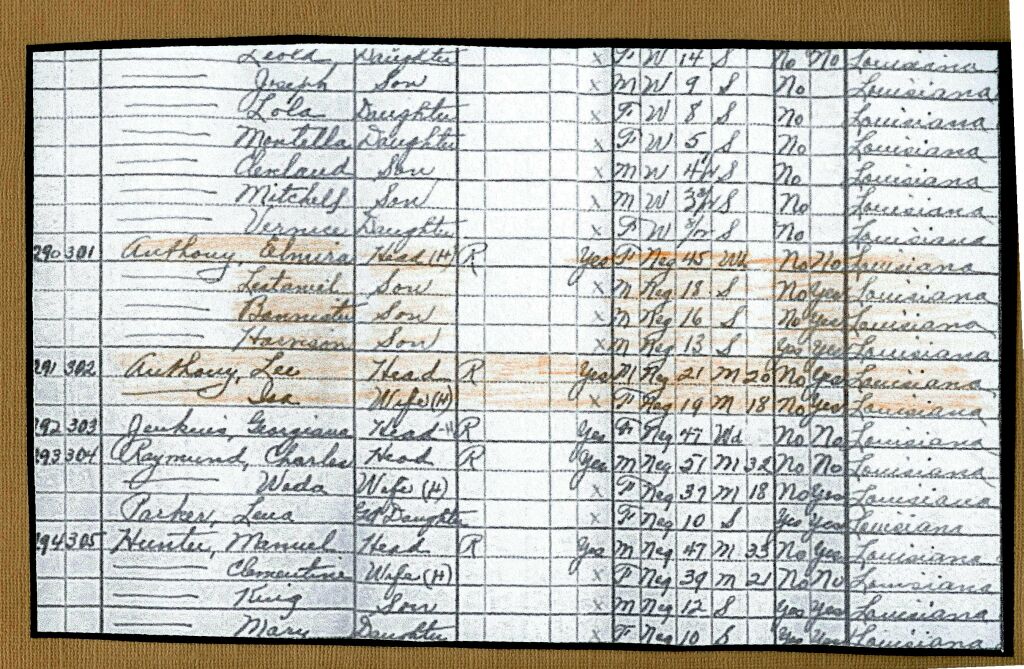 Leola Daughter x F W 14 S No No Louisiana
Joseph Son x M W 9 S No Louisiana
Lola Daughter x F W 8 S No Louisiana
Daughter x F W 5 S No Louisiana
Son x M W S No Louisiana
Mitchell Son x M W S No Louisiana
Vernice Daughter x F W S No Louisiana
290 301 Anthony, Elmira Head (H) R Yes F Neg 45 Wd No No Louisiana
Son x M Neg 18 S No Yes Louisiana
Bannister Son x M Neg 16 S No Yes Louisiana
Harrison Son x M Neg 13 S Yes Yes Louisiana
291 302 Anthony, Lee Head R Yes M Neg 21 M 20 No Yes Louisiana
Ida Wife (H) x F Neg 19 M 18 No Yes Louisiana
292 303 Jenkins, Georgiana Head H R Yes F Neg 47 Wd No No Louisiana
293 304 Raymund, Charles Head R Yes M Neg 51 M 32 No No Louisiana
Wada Wife (H) x F Neg 37 M 18 No Yes Louisiana
Parker, Lena Gd Daughter x F Neg 10 S Yes Yes Louisiana
294 305 Hunter, Manuel Head R Yes M Neg 47 M 33 No Yes Louisiana
Clementine Wife (H) x F Neg 39 M 21 No No Louisiana
King Son x M Neg 12 S Yes Yes Louisiana
Mary Daughter x F Neg 10 S Yes Yes Louisiana